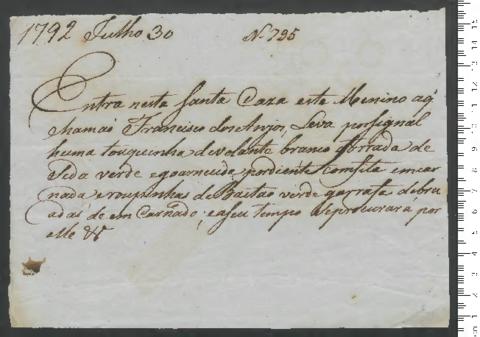 1792 Julho 30 N. 795
Entra nesta Santa Caza este Menino aq
hamaõ Francisco dos Anjos, Leva por signal
huma touquinha de volante branco forrada de
Seda verde egoarnecida por diente com fita encar
nada eroupinhas de Baetaõ verde garrafa debru
adas de en Carnado, easeu tempo Seprocurará por
elle &ª